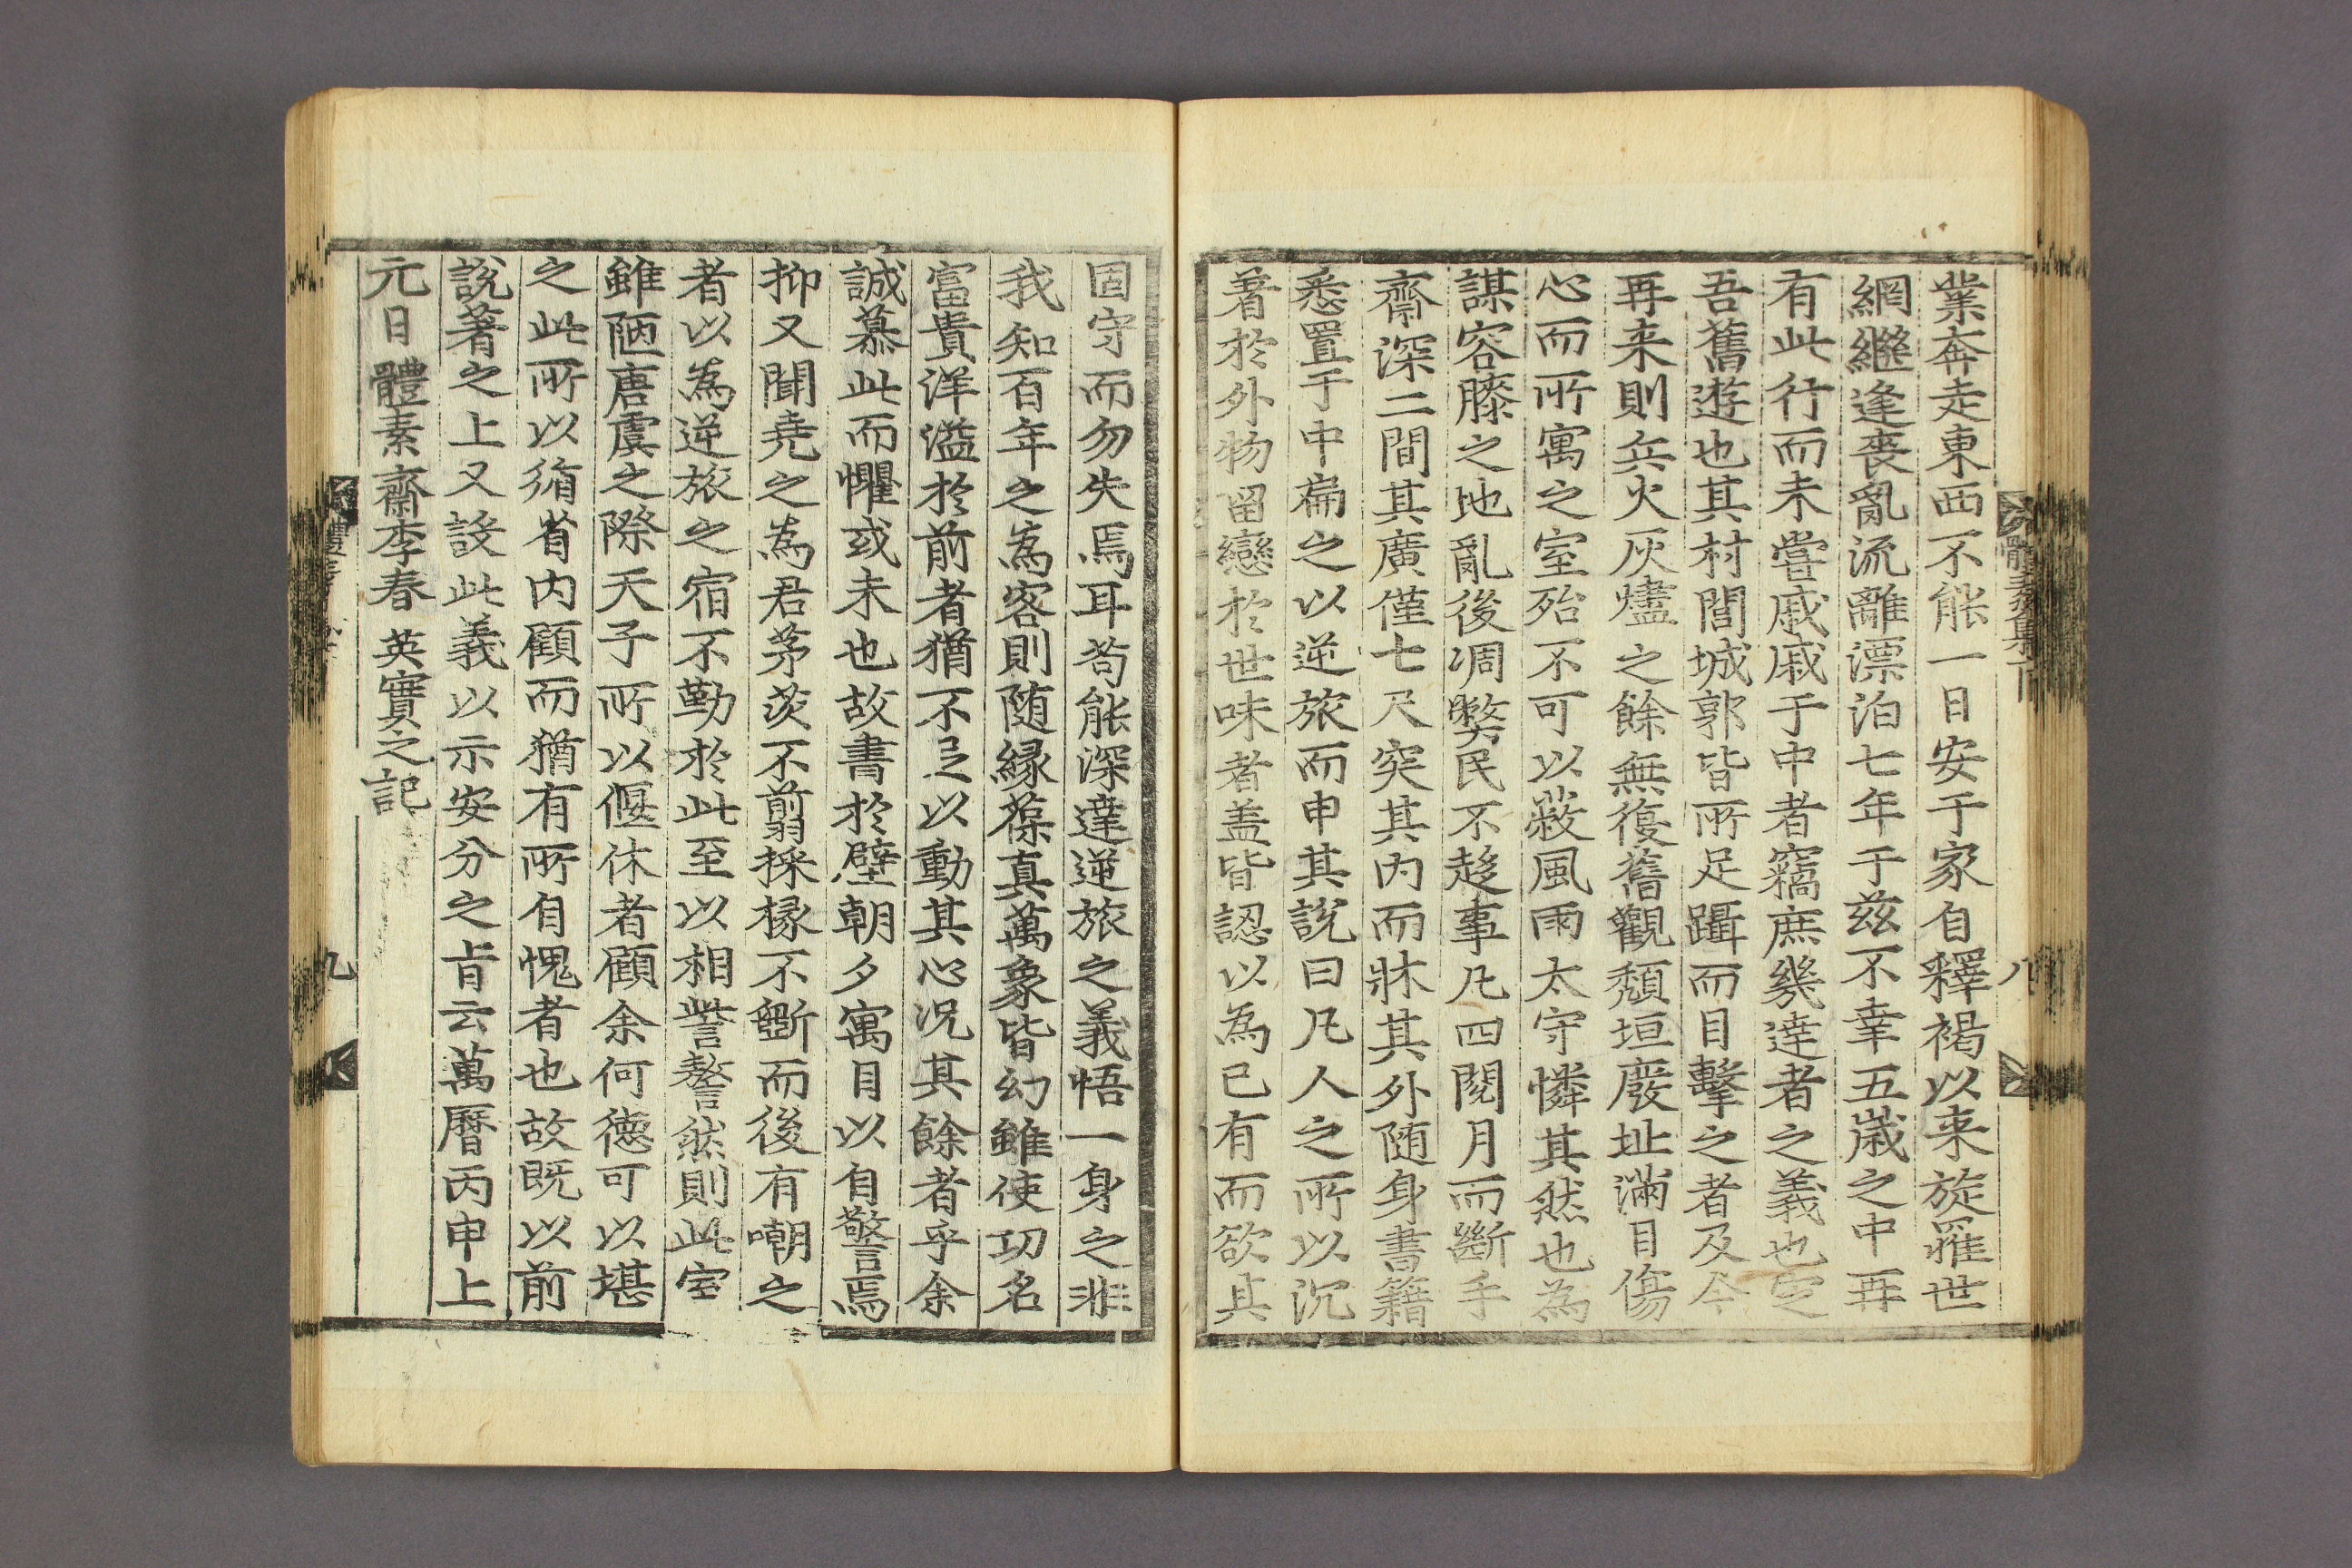 業奔走東西不能一日安于家自釋褐以来旋罹世
網繼逢喪亂流離漂泊七年于茲不幸五歲之中再
有此行而未嘗戚戚于中者竊庶幾達者之義也定
吾舊遊也其村閭城郭皆所足躡而目擊之者及今
再来則兵火灰燼之餘無復舊觀頹垣廢址滿目傷
心而所寓之室殆不可以蔽風雨太守憐其然也為
謀容膝之地亂後凋獘民不趍事凡四閱月而斷手
齋深二間其廣僅七尺突其内而牀其外随身書籍
悉置于中扁之以逆旅而申其說曰凡人之所以沉
着於外物留戀於世味者盖皆認以為己有而欲其
體素集下
八
固守而勿失焉耳苟能深達逆旅之義悟一身之非
我知百年之為客則随緣葆真萬象皆幻雖使功名
富貴洋溢於前者猶不足以動其心况其餘者乎余
誠慕此而懼或未也故書於壁朝夕寓目以自警焉
抑又聞堯之為君茅茨不翦採椽不斲而後有嘲之
者以為逆旅之宿不勤於此至以相訾謷然則此室
雖陋唐虞之際天子所以偃休者顧余何德可以堪
之此所以循省内顧而猶有所自愧者也故既以前
說著之上又設此義以示安分之㫖云萬曆丙申上
元日體素齋李春英實之記
九